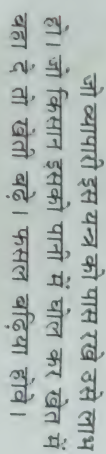 जो व्यापारी इस यन्त्र को पास रखे उसे लाभ
हो। जो किसान इसको पानी में घोल कर खेत में
बहा दे तो खेती बढ़े। फसल बढ़िया होवे।